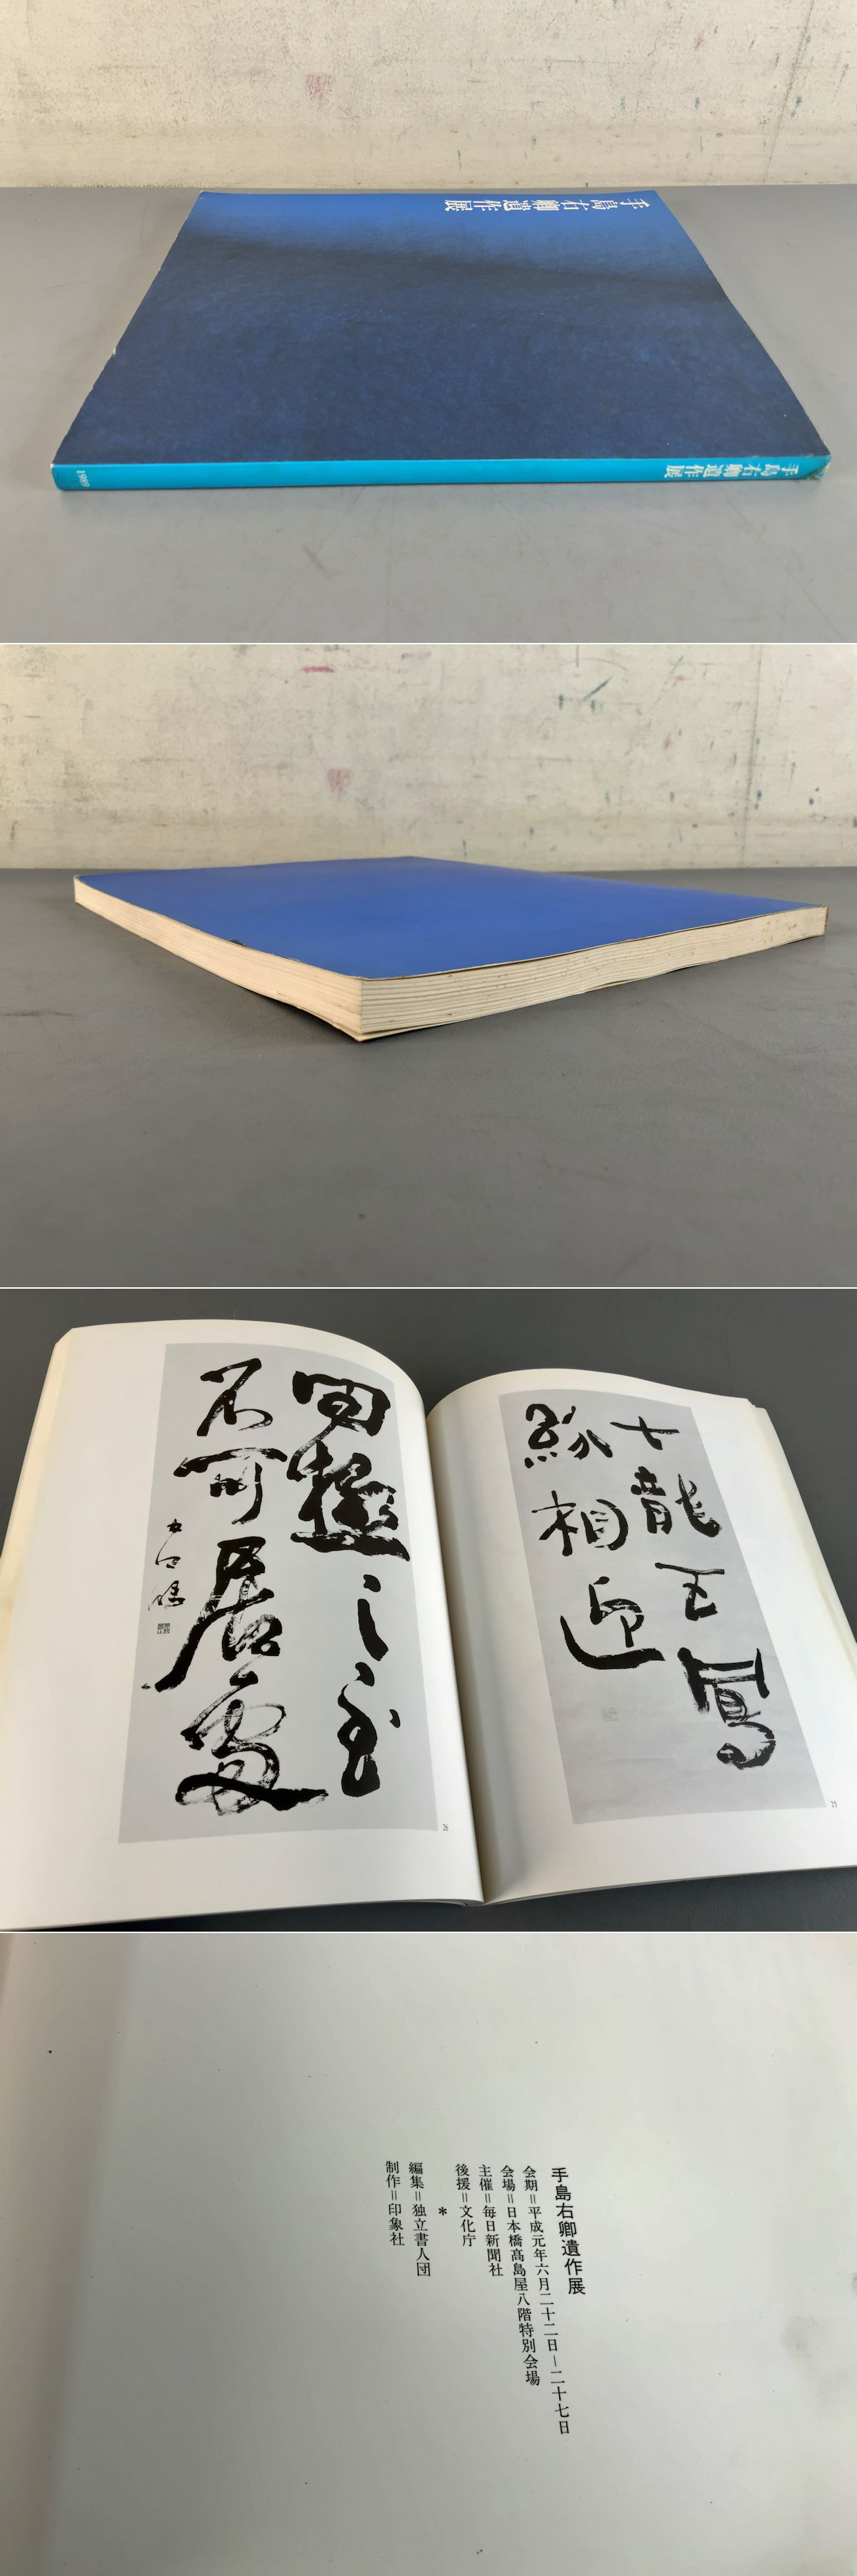 手島右卿遺作展
手島右卿遺作展
1989
七龍五鳳
紛相迎
25
四極之至
不可居處
26
手島右卿遺作展
会期=平成元年六月二十二日—二十七日
会場=日本橋髙島屋八階特別会場
主催=毎日新聞社
後援=文化庁
*
編集=独立書人団
制作=印象社